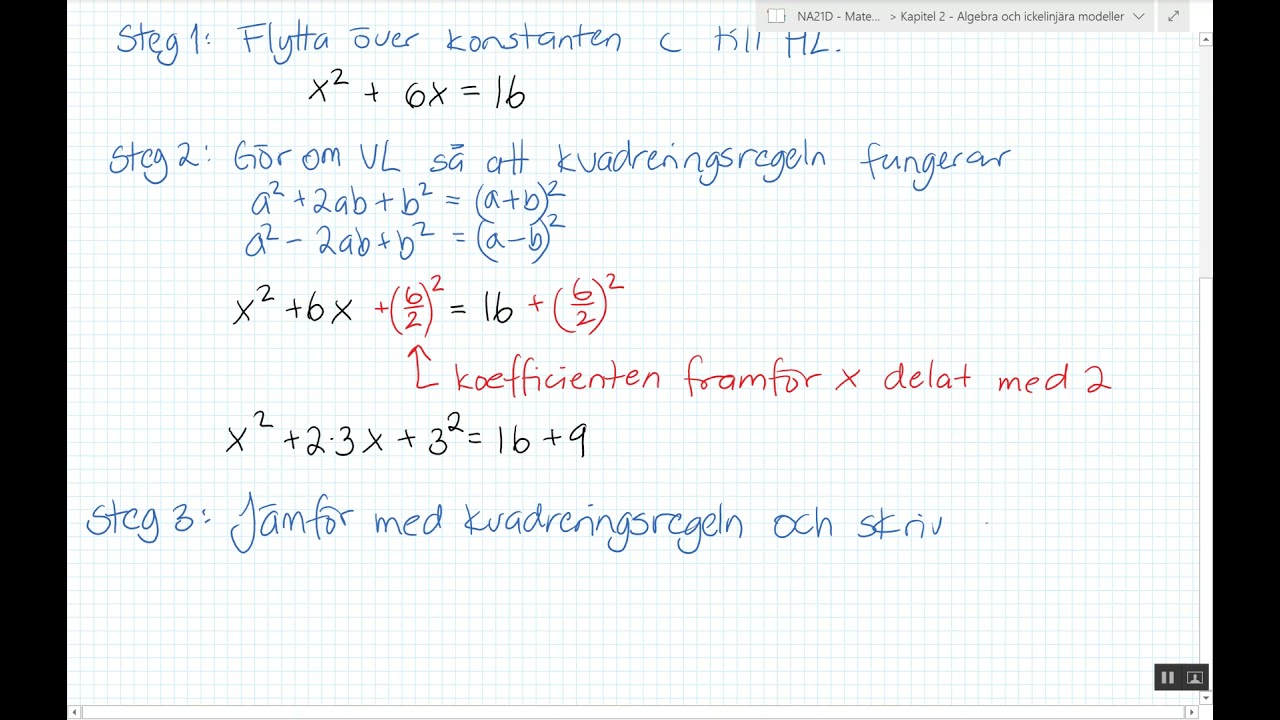 NA21D - Mate... > Kapitel 2 - Algebra och ickelinjära modeller
Steg 1: Flytta över konstanten c till HL.
x² + 6x = 16
Steg 2: Gör om VL så att kvadreringsregeln fungerar
a² + 2ab + b² = (a+b)²
a² - 2ab + b² = (a-b)²
x² + 6x + (6/2)² = 16 + (6/2)²
koefficienten framför x delat med 2
x² + 2·3x + 3² = 16 + 9
Steg 3: Jämför med kvadreringsregeln och skriv